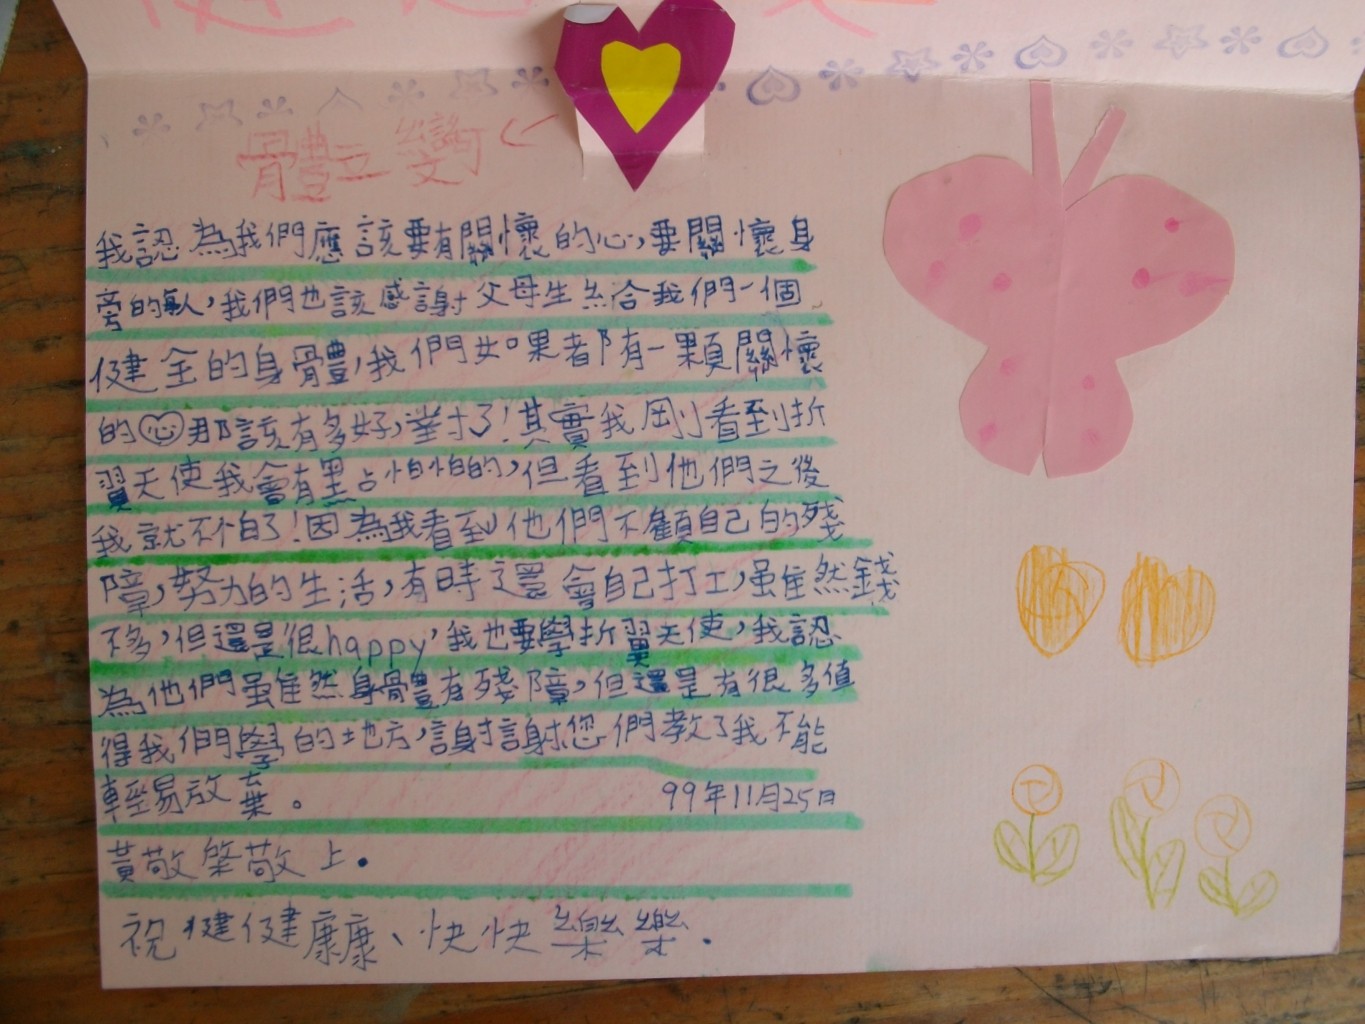 體立變
我認為我們應該要有關懷的心,要關懷身
旁的人,我們也該感謝父母生給我們一個
健全的身體,我們如果都有一顆關懷
的那該有多好,對了!其實我剛看到折
翼天使我會有點怕怕的,但看到他們之後
我就不怕了!因為我看到他們不顧自己的殘
障,努力的生活,有時還會自己打工,雖然錢
不多,但還是很happy,我也要學折翼天使,我認
為他們雖然身體有殘障,但還是有很多值
得我們學的地方,謝謝您們教了我不能
輕易放棄。
99年11月25日
黃敬棨敬上.
祝健健康康、快快樂樂.